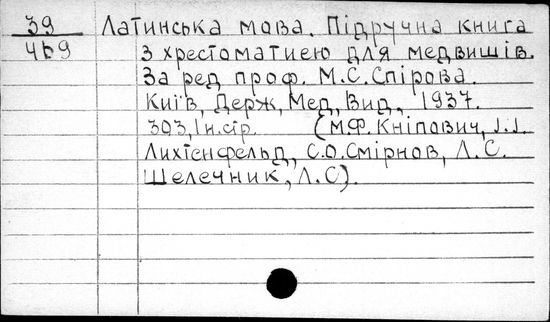 39 Латинська мова. Підручна книга
469 з хрестоматиею для медвишів.
За ред проф. М.С.Спірова.
Київ, Держ, Мед, Вид, 1937.
303, 1 н.стр. (М.Ф. Кніпович, І.І.
Лихтенфельд, С.О.Смірнов, Л.С.
Шелечник, Л.С).